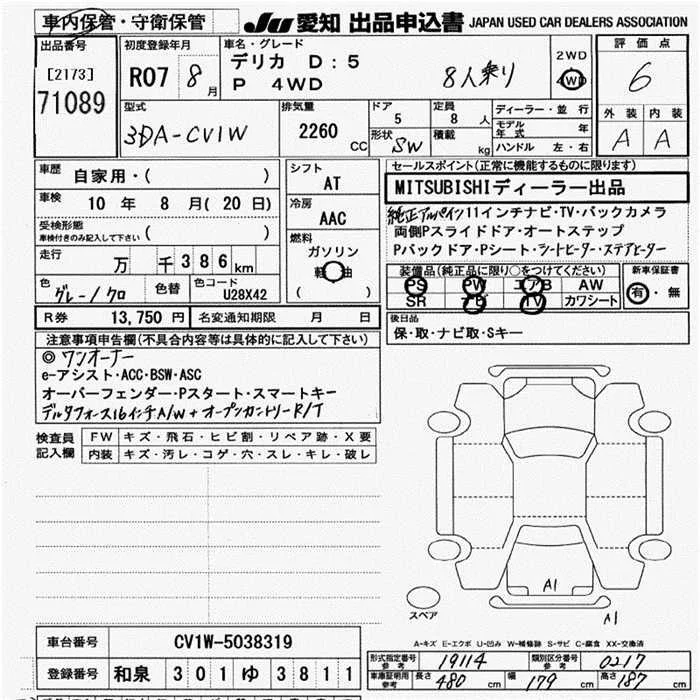 車内保管・守衛保管 JU 愛知 出品申込書 JAPAN USED CAR DEALERS ASSOCIATION
出品番号 [2173] 71089
初度登録年月 R07 8月
車名・グレード デリカ D:5
P 4WD 8人乗り
2WD 4WD
評価点 6
外装 内装
A A
型式 3DA-CV1W
排気量 2260 CC
ドア 5
形状 SW
定員 8 人
積載 kg
ディーラー・並行
モデル年式 年
ハンドル 左・右
車歴 自家用・( )
車検 10 年 8 月(20 日)
受検形態 車検付きのみ記入して下さい ( )
走行 万 千386km
色 グレー/クロ 色替 色コード U28X42
シフト AT
冷房 AAC
燃料 ガソリン 軽油
( )
R券 13,750 円 名変通知期限 月 日
セールスポイント(正常に機能するものに限ります)
MITSUBISHIディーラー出品
純正アルパイン11インチナビ・TV・バックカメラ
両側Pスライドドア・オートステップ
Pバックドア・Pシート・シートヒーター・ステアヒーター
装備品(純正品に限り○をつけてください) 新車保証書
PS PW エアB AW
SR ナビ TV カワシート
有・無
後日品
保・取・ナビ取・Sキー
注意事項申告欄(不具合内容等は具体的に記入して下さい)
◎ワンオーナー
e-アシスト・ACC・BSW・ASC
オーバーフェンダー・Pスタート・スマートキー
デルタフォース16インチA/W+オープンカントリーR/T
検査員記入欄
FW キズ・飛石・ヒビ割・リペア跡・X要
内装 キズ・汚レ・コゲ・穴・スレ・キレ・破レ
A1
スペア
A1
A-キズ E-エクボ U-凹み W-補修跡 S-サビ C-腐食 XX-交換済
車台番号 CV1W-5038319
登録番号 和泉 301 ゆ 3811
形式指定番号 参考 19114 類別区分番号 参考 0217
車庫証明用 参考 長さ 480 cm 幅 179 cm 高さ 187 cm